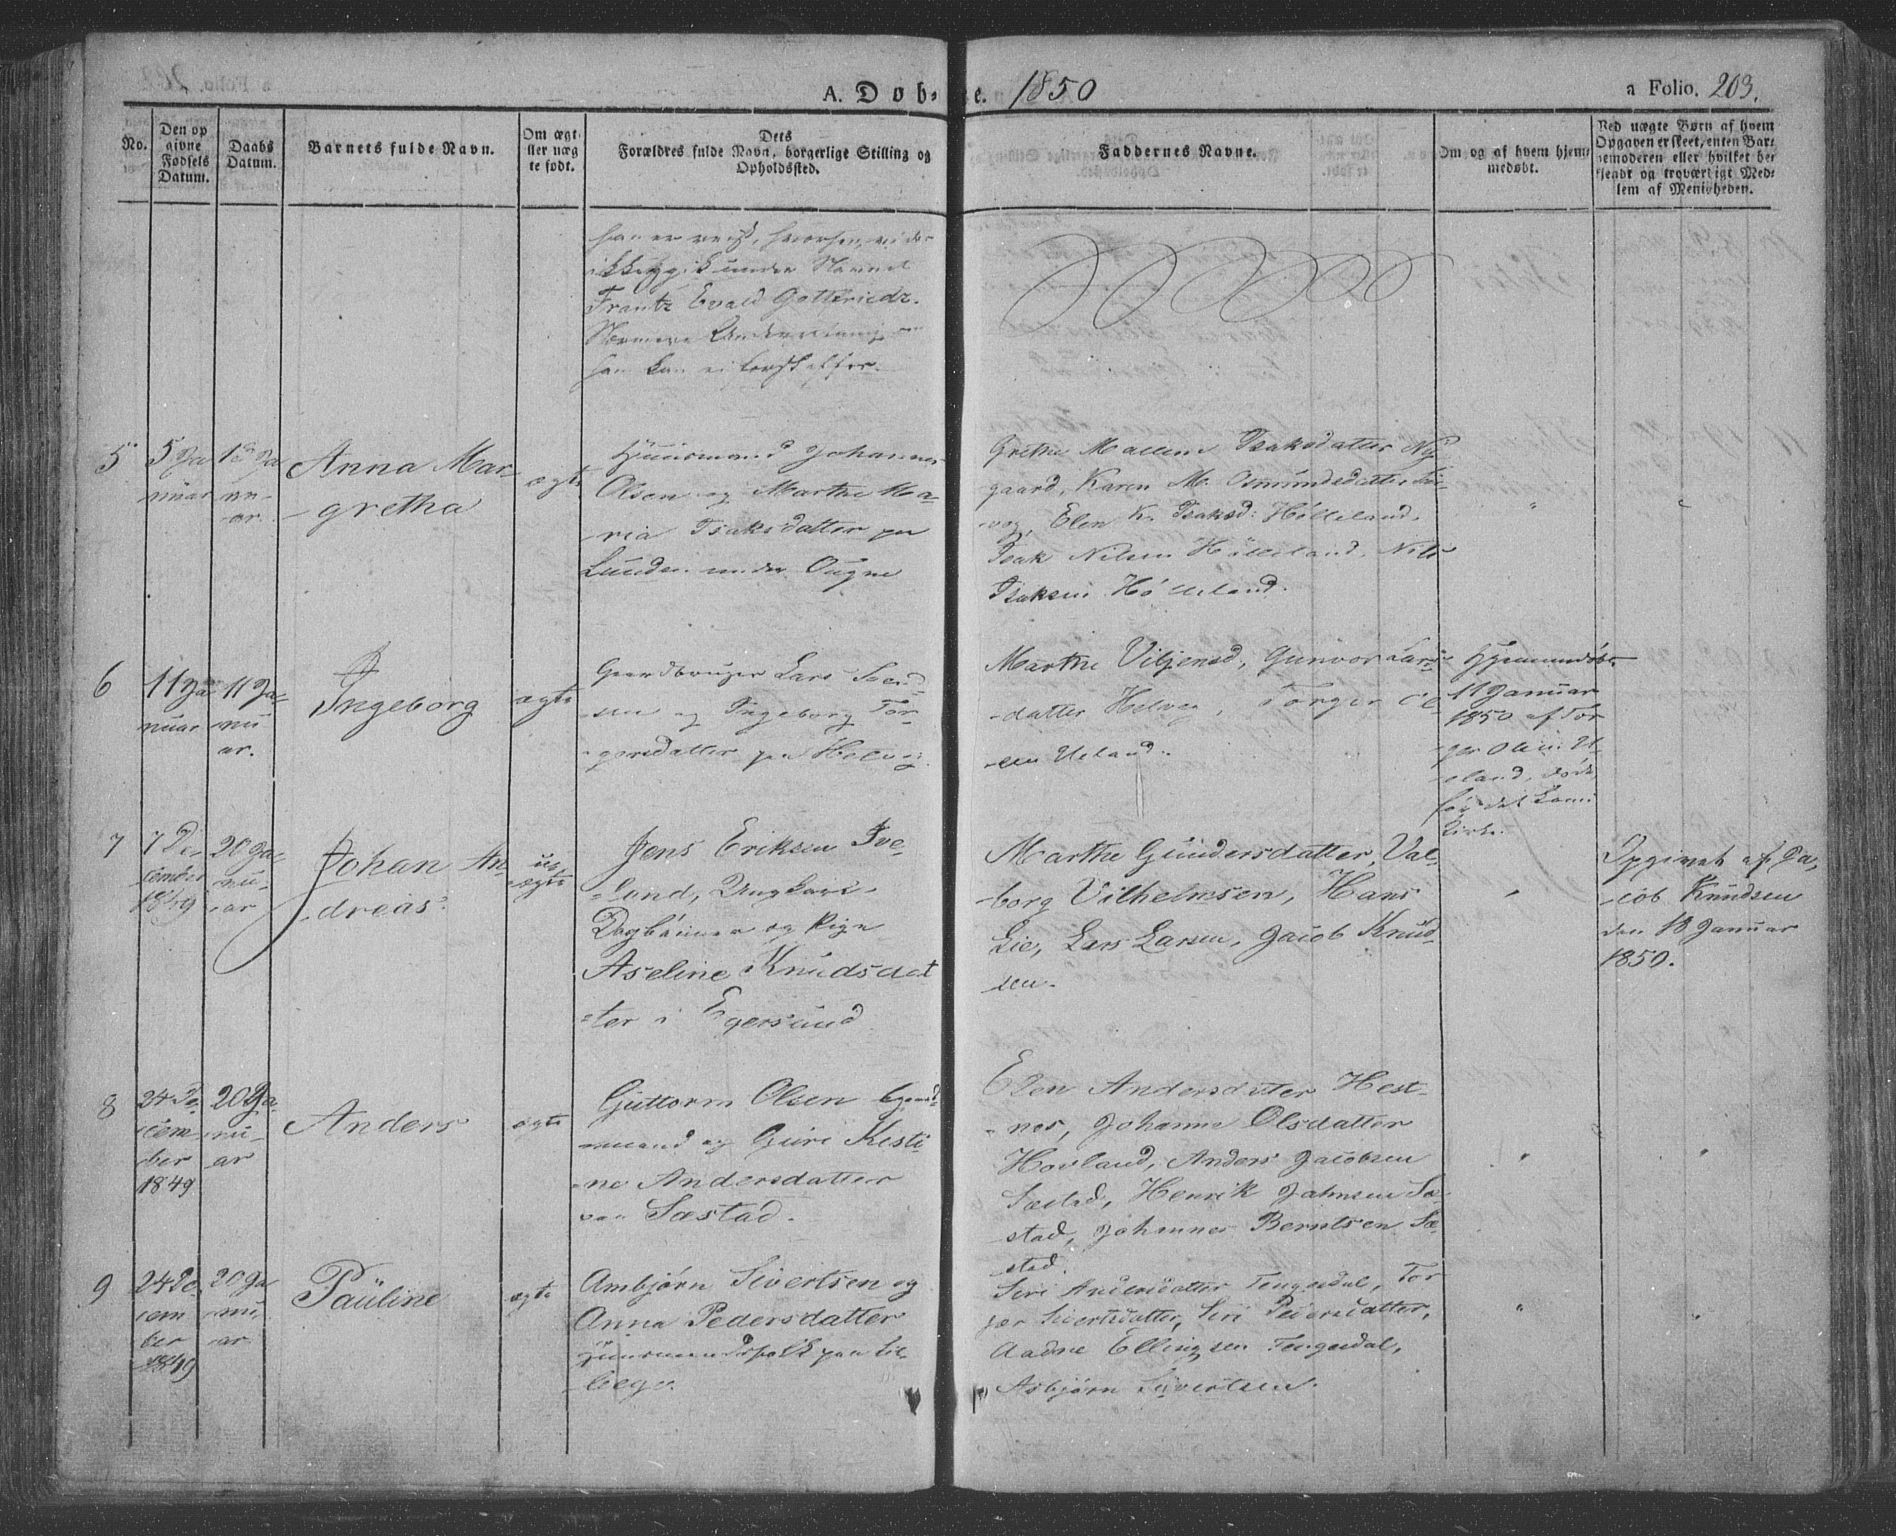 A. Døb- e. 1850
a Folio. 203.
No.
Den op
givne
Fødsels
Datum.
Daabs
Datum.
Barnets fulde Navn.
Om ægt
eller uæg
te født.
Dets
Forældres fulde Navn, borgerlige Stilling og
Opholdssted.
Faddernes Navne.
Om og af hvem hjem-
medøbt.
Ved uægte Børn af hvem
Opgaven er skeet, enten Bar-
nemoderen eller hvilket be-
kjendt og troværdigt Med-
lem af Menigheden.
han er reist,
under Navnet
Frantz Evald Gottfriedr.
Nærmere Underretning om
han kan ei
5
5 Ja
nuar
Ja
nu-
ar.
Anna Mar-
gretha
ægte
Huusmand Johannes
Olsen og Marthe Ma-
ria Isaksdatter paa
Lunden under Ougne
Grethe Mallene Isaksdatter Ny
gaard, Karen M. Osmundsdatter Sir-
vog, Elen K. Isaksd: Hölleland,
Isak Nilsen Hölleland, Nils
Isaksen Hölleland.
"
"
6
11 Ja
nuar
11 Ja-
nu
ar.
Ingeborg
ægte
Gaardbruger Lars Svend-
sen og Ingeborg Tor-
gersdatter paa Helvig.
Marthe Viljensd, Gunvor Lars-
datter Helvig, Torger Ol-
sen Ueland.
Hjemmedöbt
11 Januar
1850 af Tor
ger Olsen U-
eland, døde
før det kom i
Kirke.
7
7 De-
cember
1849
20 Ja-
nu-
ar
Johan An-
dreas.
uægte
Jens Eriksen Ive-
land, Ungkarl,
og Pige
Aseline Knudsdat
ter i Egersund
Marthe Gundersdatter, Val-
borg Vilhelmsen, Hans
Lie, Lars Larsen, Jacob Knud-
sen.
"
Opgivet af Ja-
cob Knudsen
den 18 Januar
1850.
8
24 De-
cem-
ber
1849
20 Ja-
nu-
ar
Anders
ægte
Guttorm Olsen
mand og Guri Kisti-
ne Andersdatter
paa Sæstad.
Elen Andersdatter Hest-
nes, Johanne Olsdatter
Hovland, Anders Jacobsen
Sæstad, Henrik Jahnsen Sæ-
stad, Johannes Berntsen Sæ-
stad.
"
"
9
24 De
cem
ber
1849
20 Ja
nu-
ar
Pauline
ægte
Ambjørn Sivertsen og
Anna Pedersdatter
Huusmandsfolk paa Lil-
Siri Andersdatter Tengesdal, Tor
jær Sivertsdatter, Siri Pedersdatter,
Aadne Ellingsen Tengesdal,
Asbjørn Sivertsen.
"
"